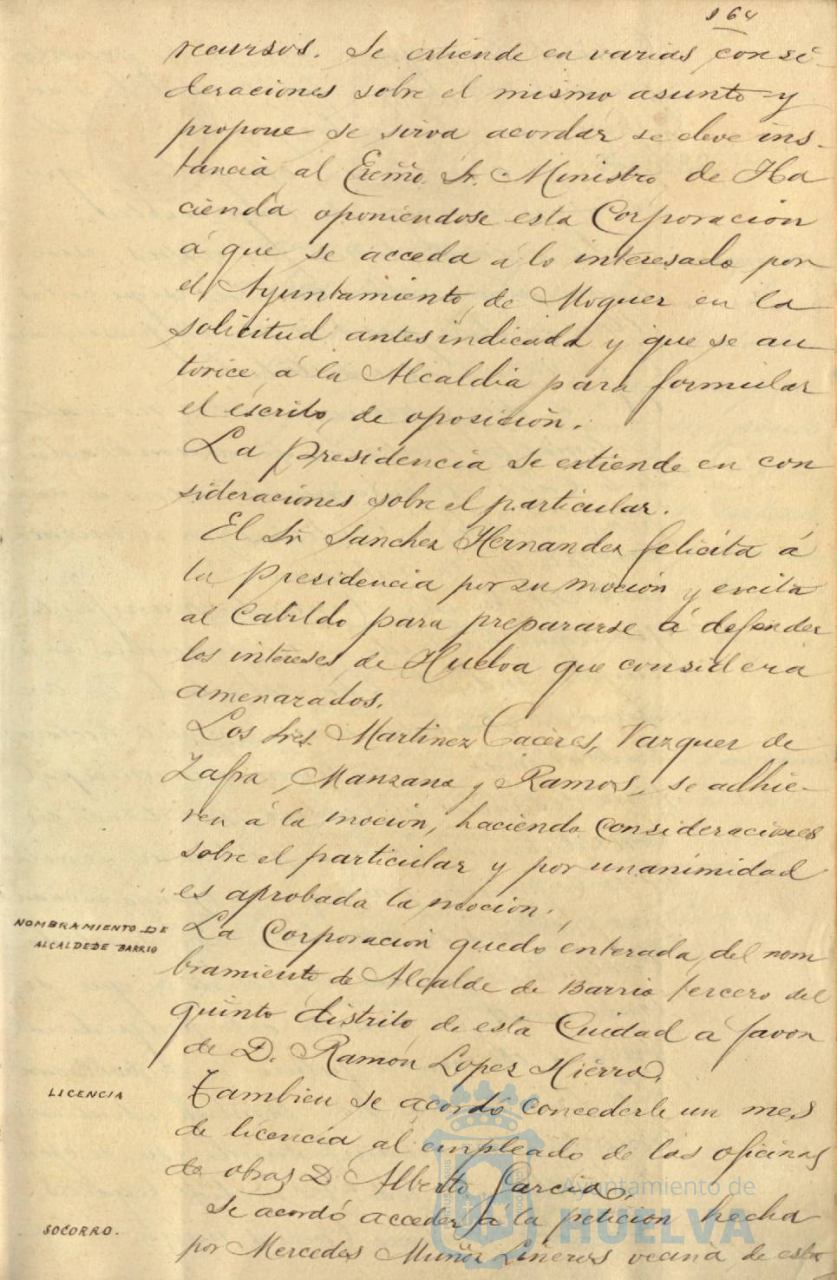 164
recursos. Se estiende en varias consi-
deraciones sobre el mismo asunto y
propone se sirva acordar se eleve ins-
tancia al Excmo. Sr. Ministro de Ha
cienda oponiéndose esta Corporación
á que se acceda á lo interesado por
el Ayuntamiento de Moguer en la
solicitud antes indicada y que se au
torice á la Alcaldia para formular
el escrito de oposición.
La Presidencia se estiende en con
sideraciones sobre el particular.
El Sr. Sanchez Hernandez felicita á
la Presidencia por su moción y escita
al Cabildo para prepararse á defender
los intereses de Huelva que considera
amenazados.
Los Sres. Martinez Caceres, Vazquez de
Zafra, Manzano y Ramos, se adhie-
ren á la moción, haciendo consideraciones
sobre el particular y por unanimidad
es aprobada la moción.
NOMBRAMIENTO DE
ALCALDE DE BARRIO
La Corporación quedó enterada del nom
bramiento de Alcalde de Barrio tercero del
quinto distrito de esta Ciudad a favor
de D. Ramon Lopez Hierro.
LICENCIA
Tambien se acordó concederle un mes
de licencia al empleado de las oficinas
de obras D. Alberto Garcia.
SOCORRO.
Se acordó acceder á la petición hecha
por Mercedes Muñoz Lineros vecina de esta
Ayuntamiento de
HUELVA